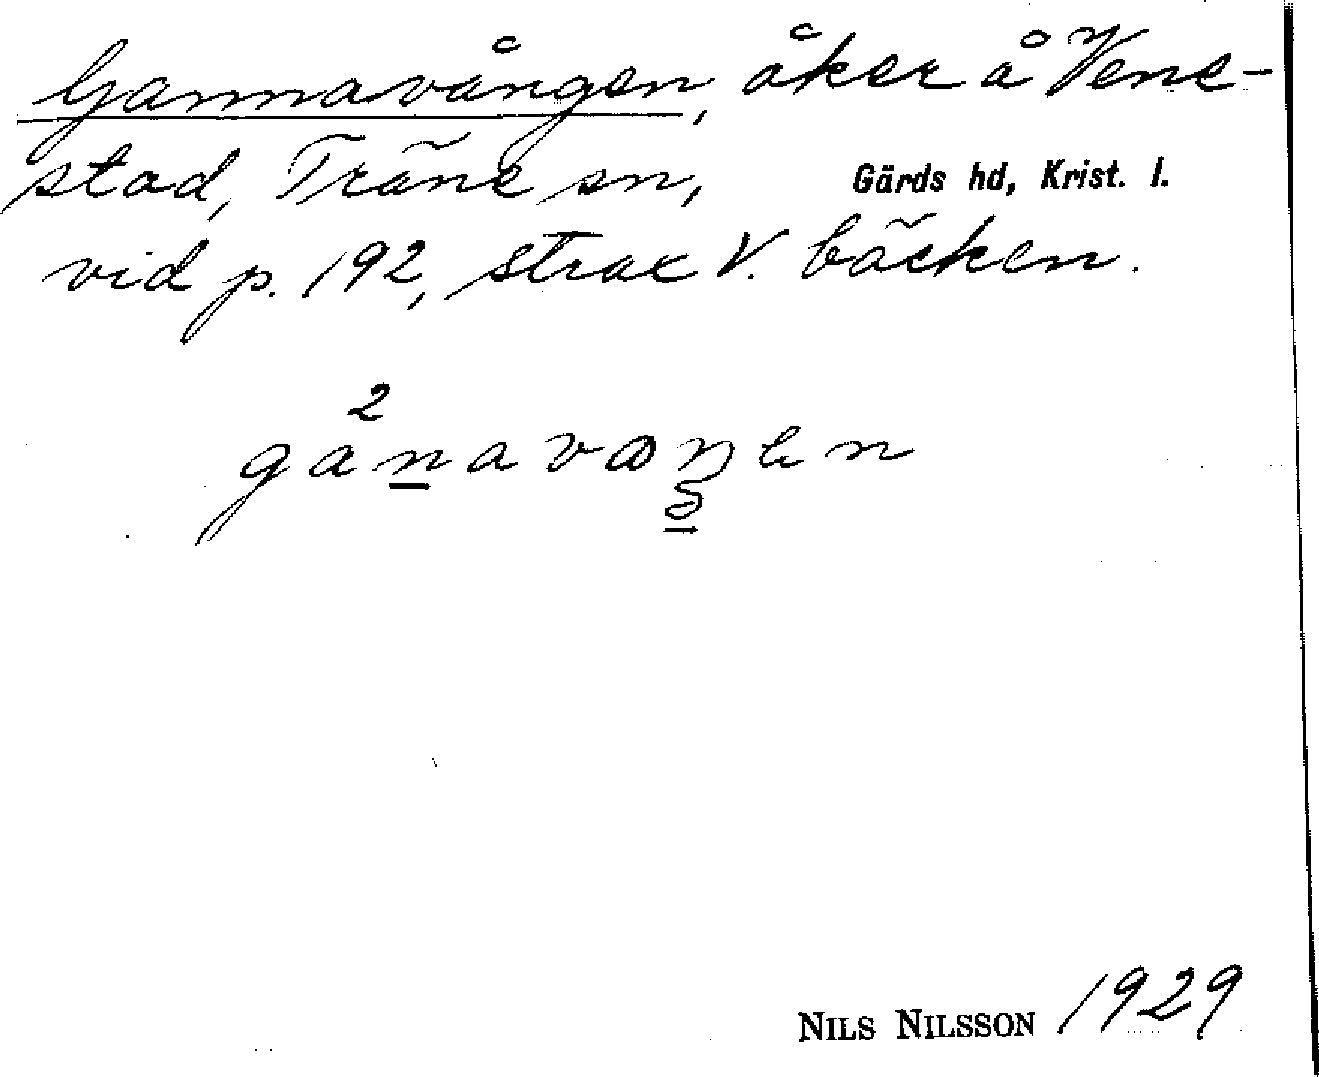 Gannavången, åker å Vene-
stad, Träne sn, Gärds hd, Krist. l.
vid p. 192, strax V. bäcken.
2
NILS NILSSON 1929